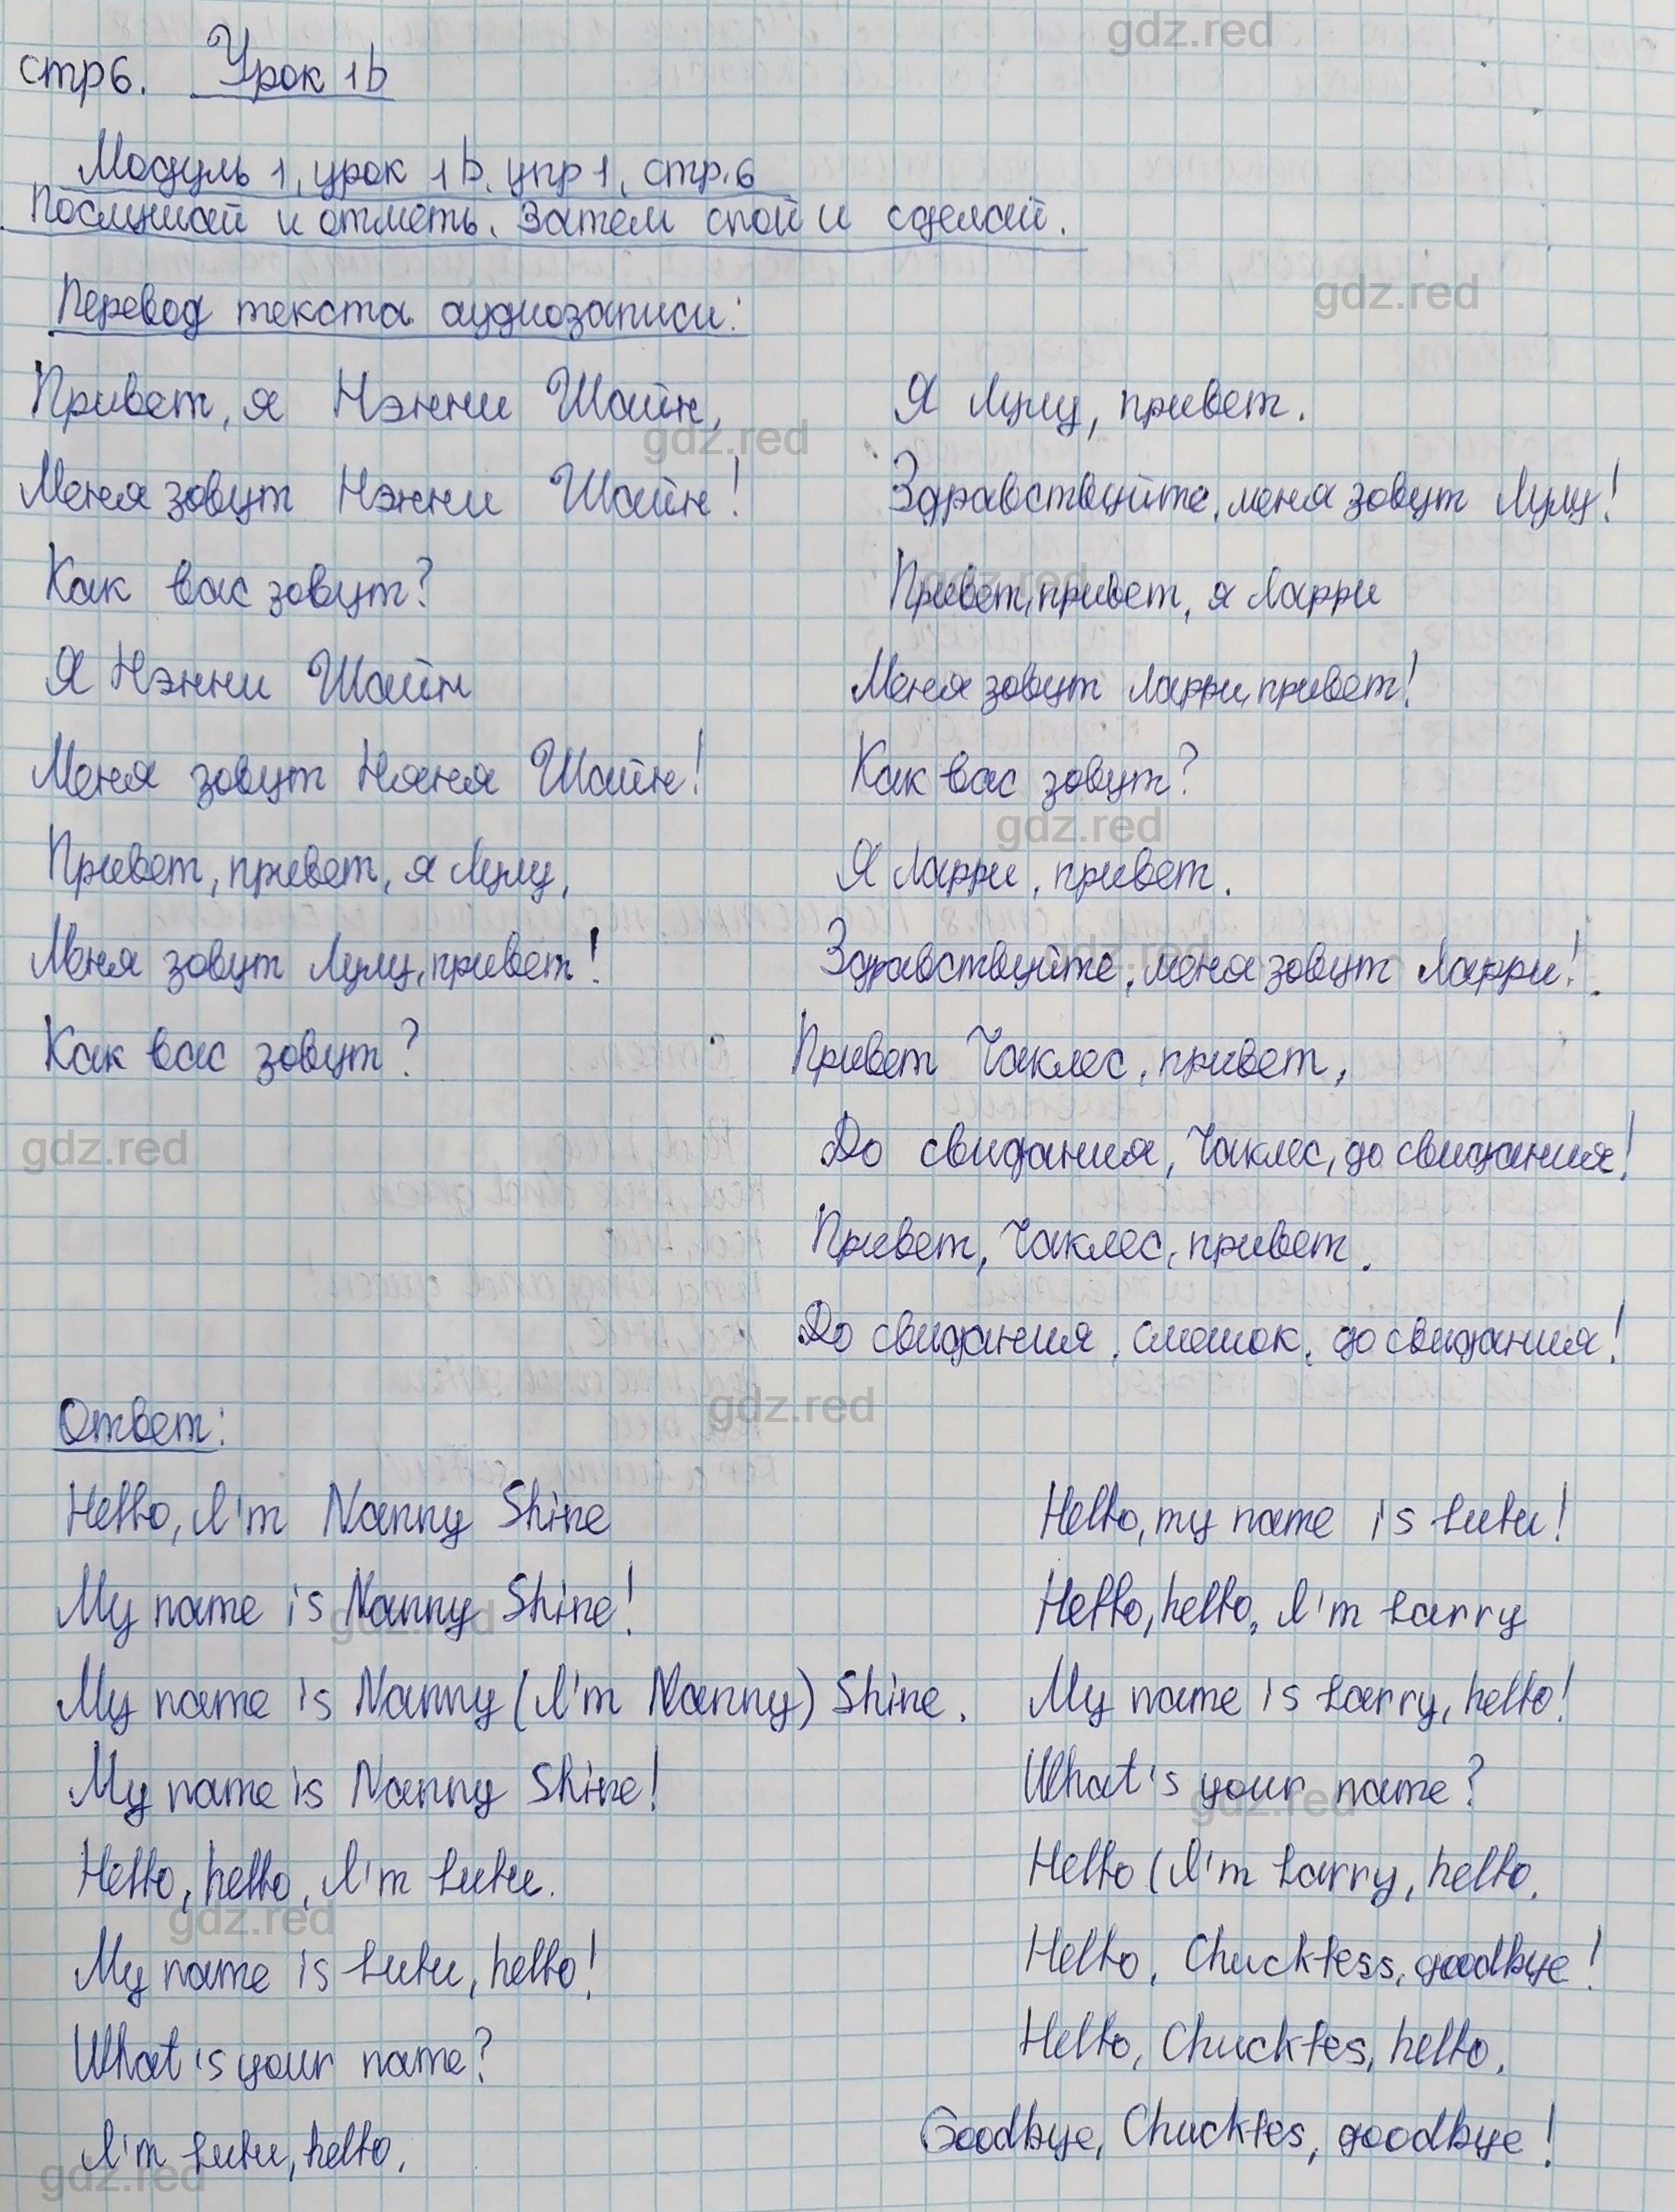 стр 6. Урок 1b
Модуль 1, урок 1b, упр 1, стр. 6
Послушай и отметь. Затем спой и сделай.
Перевод текста аудиозаписи:
Привет, я Нэнни Шайн,
Меня зовут Нэнни Шайн!
Как вас зовут?
Я Нэнни Шайн
Меня зовут Няня Шайн!
Привет, привет, я Лулу,
Меня зовут Лулу, привет!
Как вас зовут?
Я Лулу, привет.
Здравствуйте, меня зовут Лулу!
Привет, привет, я Ларри
Меня зовут Ларри, привет!
Как вас зовут?
Я Ларри, привет.
Здравствуйте, меня зовут Ларри!
Привет Чаклес, привет,
До свидания, Чаклес, до свидания!
Привет, Чаклес, привет.
До свидания, смешок, до свидания!
Ответ:
Hello, I'm Nanny Shine
My name is Nanny Shine!
My name is Nanny (I'm Nanny) Shine.
My name is Nanny Shine!
Hello, hello, I'm Lulu.
My name is Lulu, hello!
What's your name?
I'm Lulu, hello.
Hello, my name is Lulu!
Hello, hello, I'm Larry
My name is Larry, hello!
What's your name?
Hello (I'm Larry, hello.
Hello, Chuckless, goodbye!
Hello, Chuckles, hello.
Goodbye, Chuckles, goodbye!
gdz.red
gdz.red
gdz.red
gdz.red
gdz.red
gdz.red
gdz.red
gdz.red
gdz.red
gdz.red
gdz.red
gdz.red